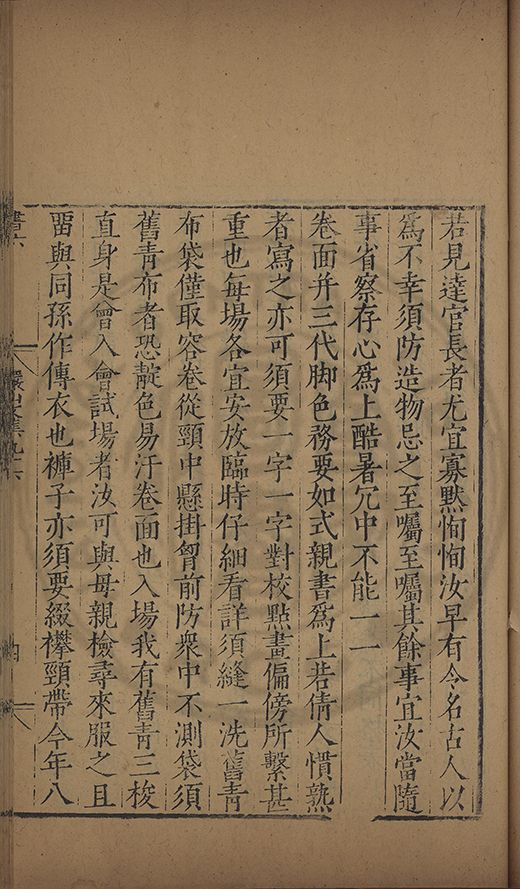 若見達官長者尤宜寡默恂恂汝早有今名古人以
爲不幸須防造物忌之至囑至囑其餘事宜汝當隨
事省察存心爲上酷暑冗中不能一一
卷面并三代脚色務要如式親書爲上若倩人慣熟
者寫之亦可須要一字一字對校點畫偏傍所繫甚
重也每場各宜安放臨時仔細看詳須縫一洗舊青
布袋僅取容卷從頸中懸掛胷前防衆中不測袋須
舊青布者恐靛色易汙卷面也入場我有舊青三梭
直身是曾入會試場者汝可與母親檢尋來服之且
留與同孫作傳衣也褲子亦須要綴襻頸帶今年八
書六 儼山集九十六 四